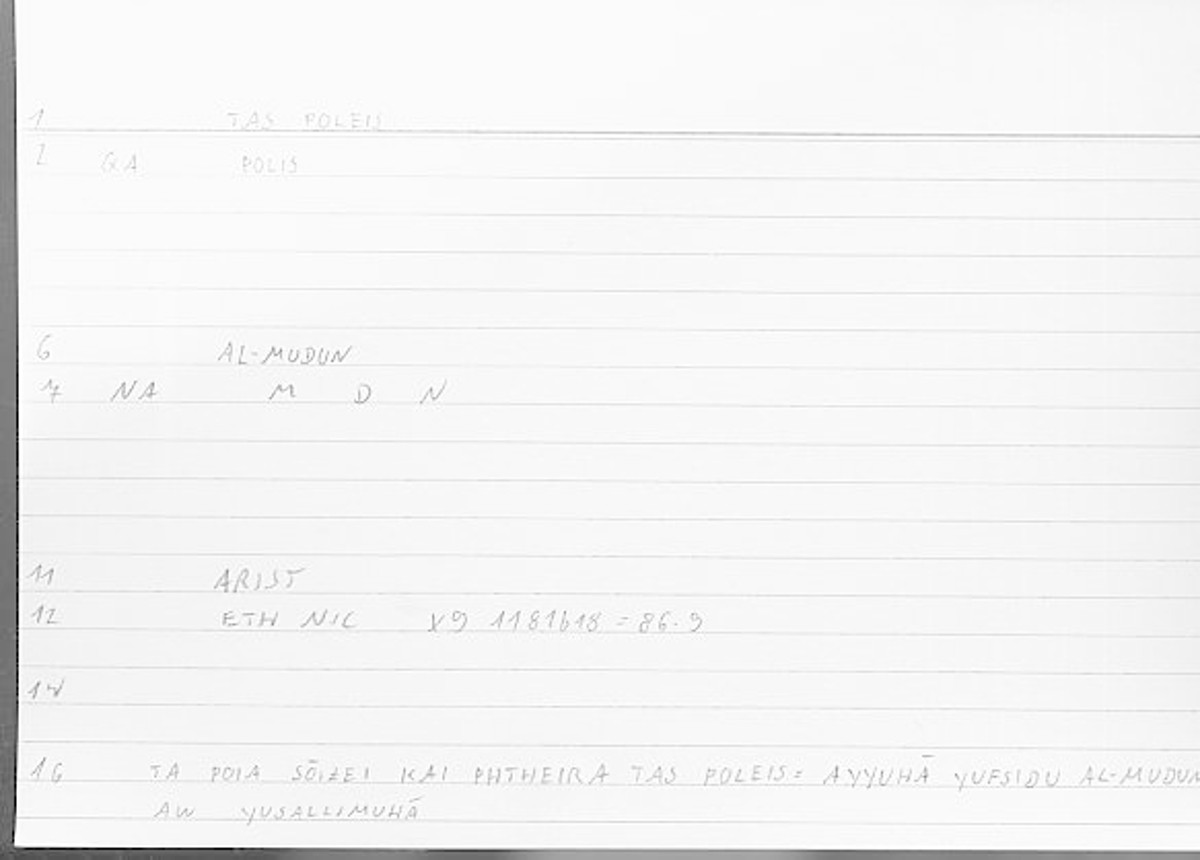 1 TAS POLEIS
2 GA POLIS
6 AL-MUDUN
7 NA M D N
11 ARIST
12 ETH NIC X9 1181b18 = 86.9
14
16 TA POIA SŌIZEI KAI PHTHEIRA TAS POLEIS = AYYUHĀ YUFSIDU AL-MUDUN
AW YUSALLIMUHĀ